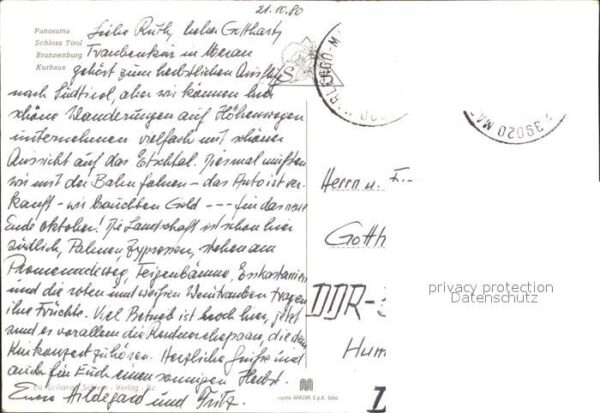 21.10.80
Panorama
Schloss Tirol
Brunnenburg
Kurhaus
Liebe Ruth, lieber Gotthard,
Traubenkur in Meran
gehört zum herbstlichen Ausflug
nach Südtirol, aber wir können hier
schöne Wanderungen auf Höhenwegen
unternehmen vielfach mit schöner
Aussicht auf das Etschtal. Diesmal mußten
wir mit der Bahn fahren - das Auto ist ver-
kauft - wir brauchten Geld --- für das neue
Ende Oktober! Die Landschaft ist schon hier
südlich, Palmen, Zypressen, stehen am
Promenadeweg, Feigenbäume, Esskastanien
und die roten und weißen Weintrauben tragen
ihre Früchte. Viel Betrieb ist noch hier, jetzt
sind es vor allem die Rentnerehepaare, die dem
Kurkonzert zuhören. Herzliche Grüße und
auch für Euch einen sonnigen Herbst.
Eure Hildegard und Fritz.
Herrn u. F
Gotth
DDR-
Hum
39020 MA
privacy protection
Datenschutz
Verlag - Bz